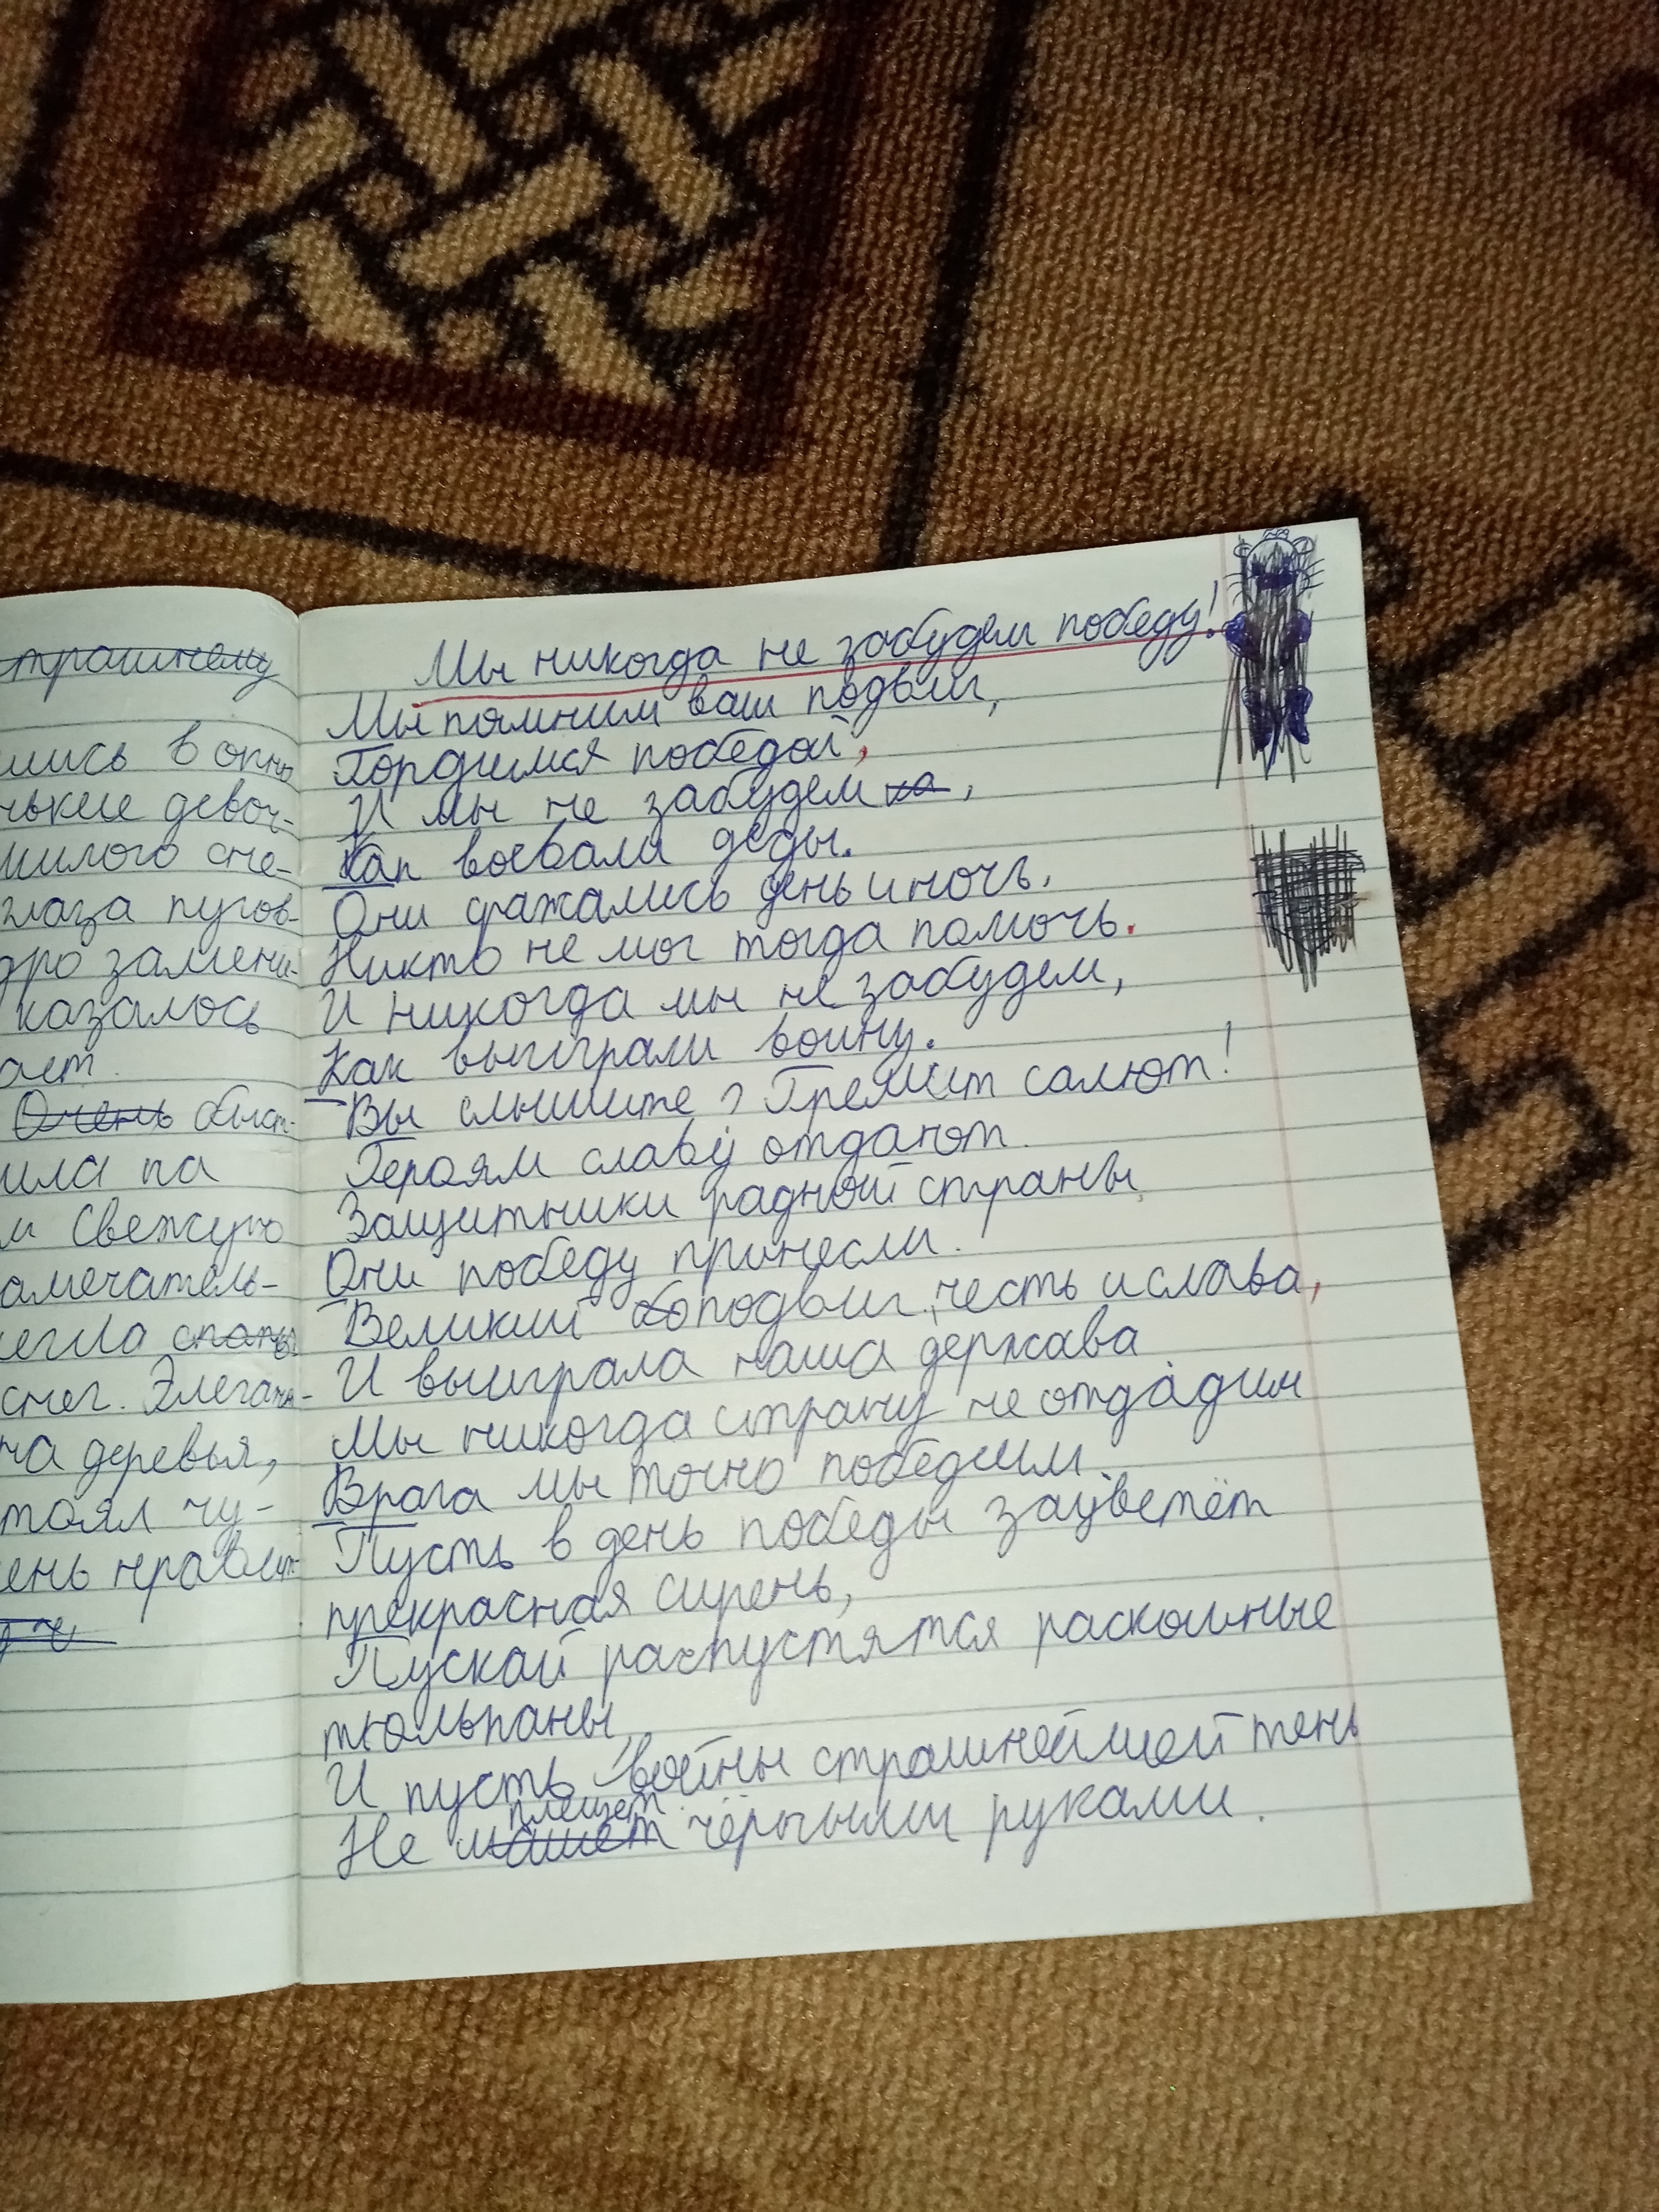 трашнему
шись в окно
нькие девоч-
милого сне-
глаза пугов-
дро замени-
казалось
ает.
Очень быст-
ила на
м свежую
амечатель-
егла спать
снег. Элегант-
на деревья,
тоял чу-
ень нравит-
Мы никогда не забудем победу!
Мы помним ваш подвиг,
Гордимся победой,
И мы не забудем ка,
Как воевали деды.
Они сражались день и ночь.
Никто не мог тогда помочь.
И никогда мы не забудем,
Как выиграли войну.
Вы слышите? Гремит салют!
Героям славу отдают.
Защитники радной страны,
Они победу принесли.
Великий подвиг, честь и слава,
И выиграла наша держава
Мы никогда страну не отдадим
Врага мы точно победим.
Пусть в день победы зацветёт
прекрасная сирень,
Пускай распустятся раскошные
тюльпаны,
И пусть войны страшнейшей тень
плещет
Не машет чёрными руками.